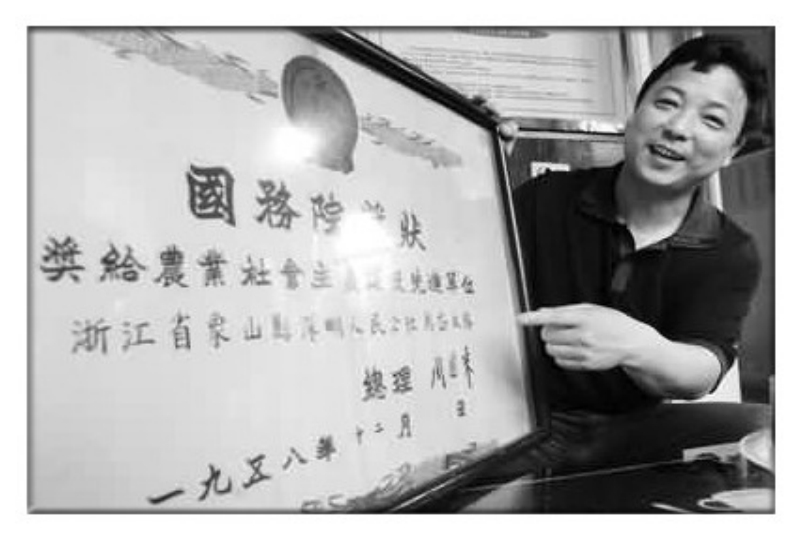 國務院獎狀
獎給農業社會主義建設先進單位
浙江省象山縣 明人民公社
總理 周恩來
一九五八年十二月 日